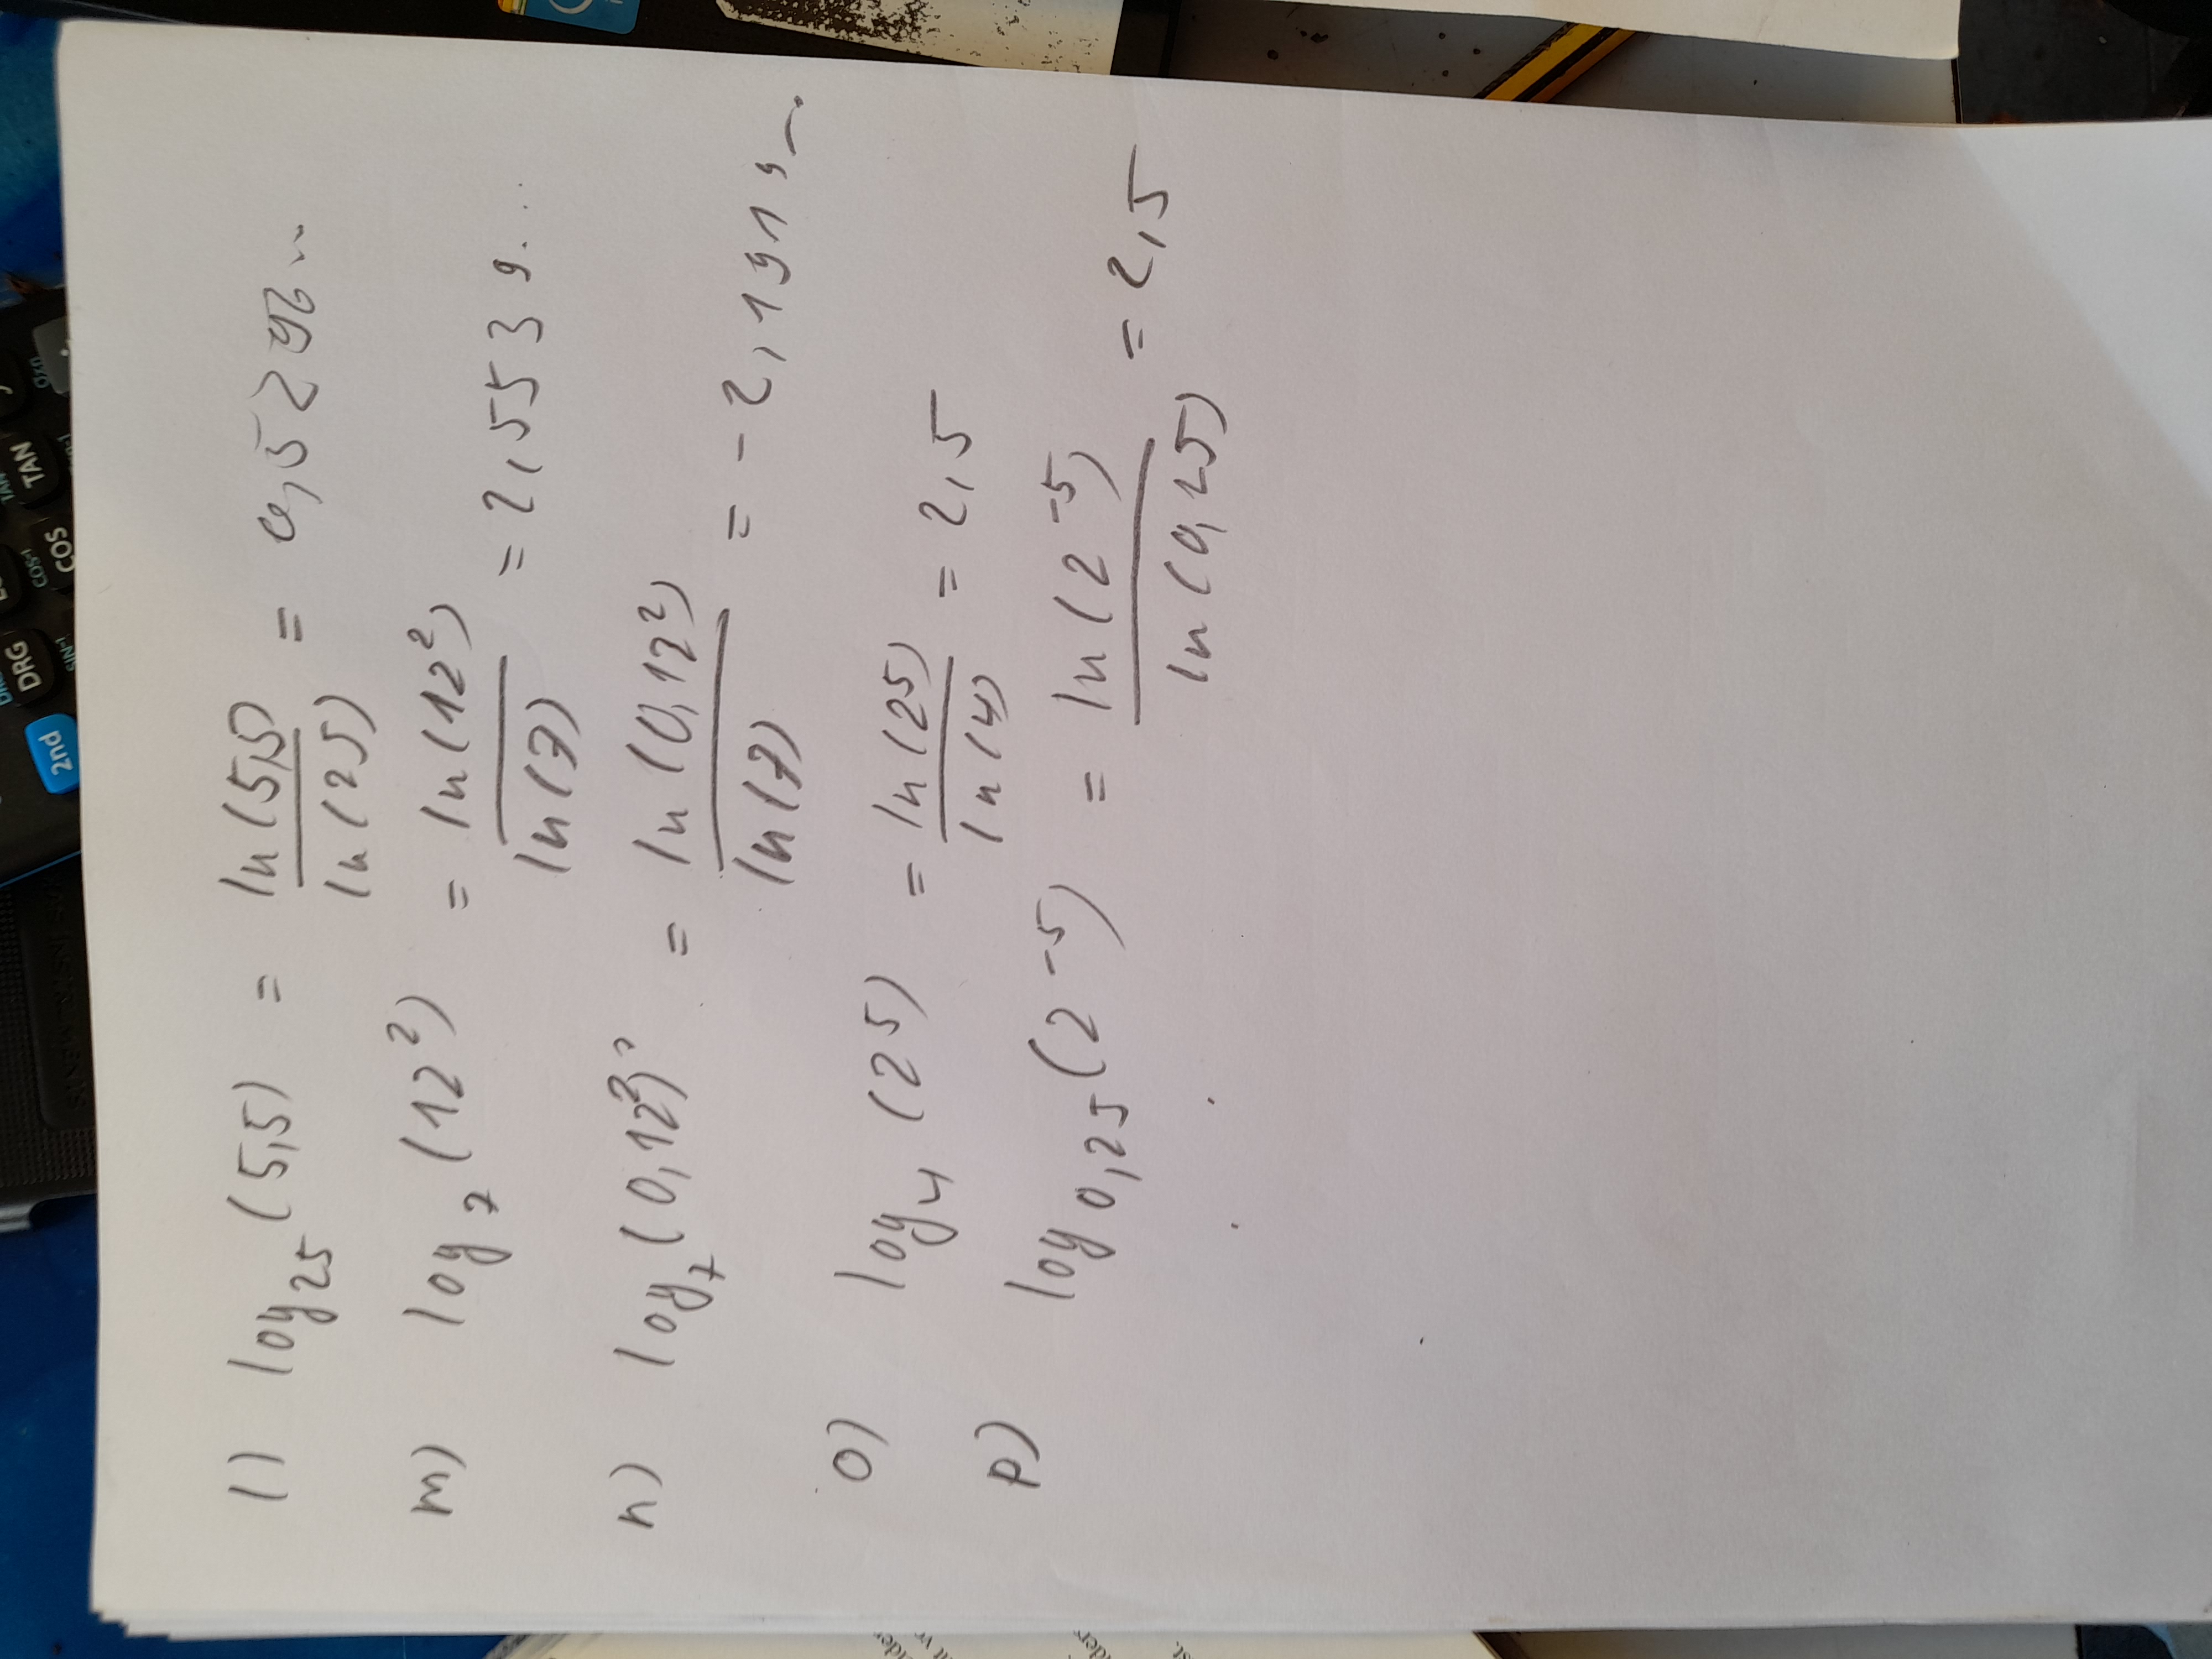 l) log₂₅(5,5) = ln(5,5)/ln(25) = 0,5296...
m) log₇(12²) = ln(12²)/ln(7) = 2,5539...
n) log₇(0,12²) = ln(0,12²)/ln(7) = -2,1919...
o) log₄(25) = ln(25)/ln(4) = 2,5
p) log₀,₂₅(2⁻⁵) = ln(2⁻⁵)/ln(0,25) = 2,5
2nd
DRG
COS
TAN
SIN⁻¹
COS⁻¹